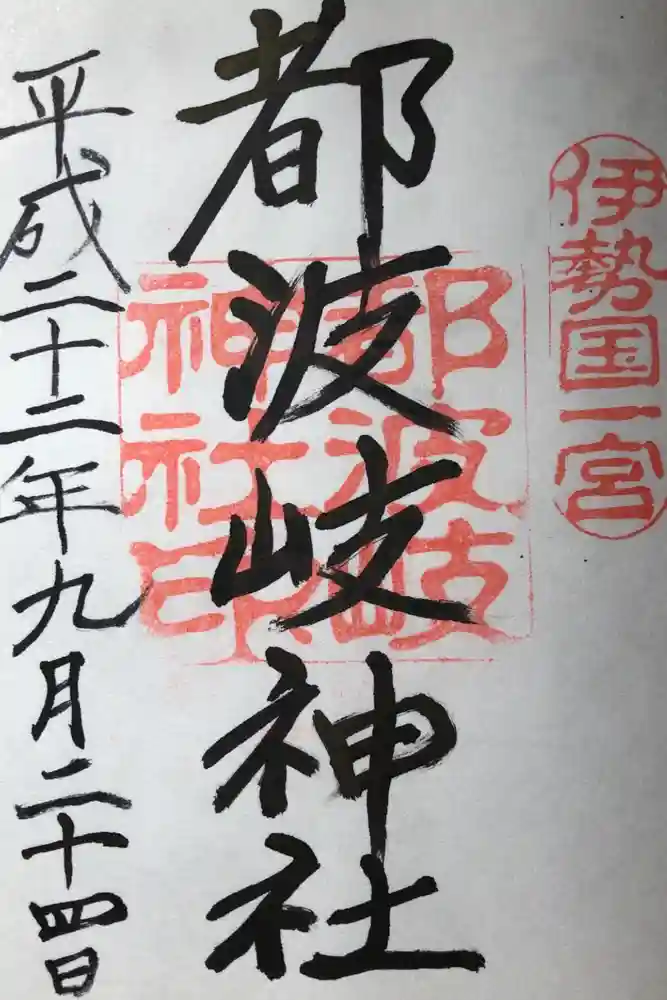 伊勢国一宮
都波岐神社
都波岐
神社印
平成二十二年九月二十四日